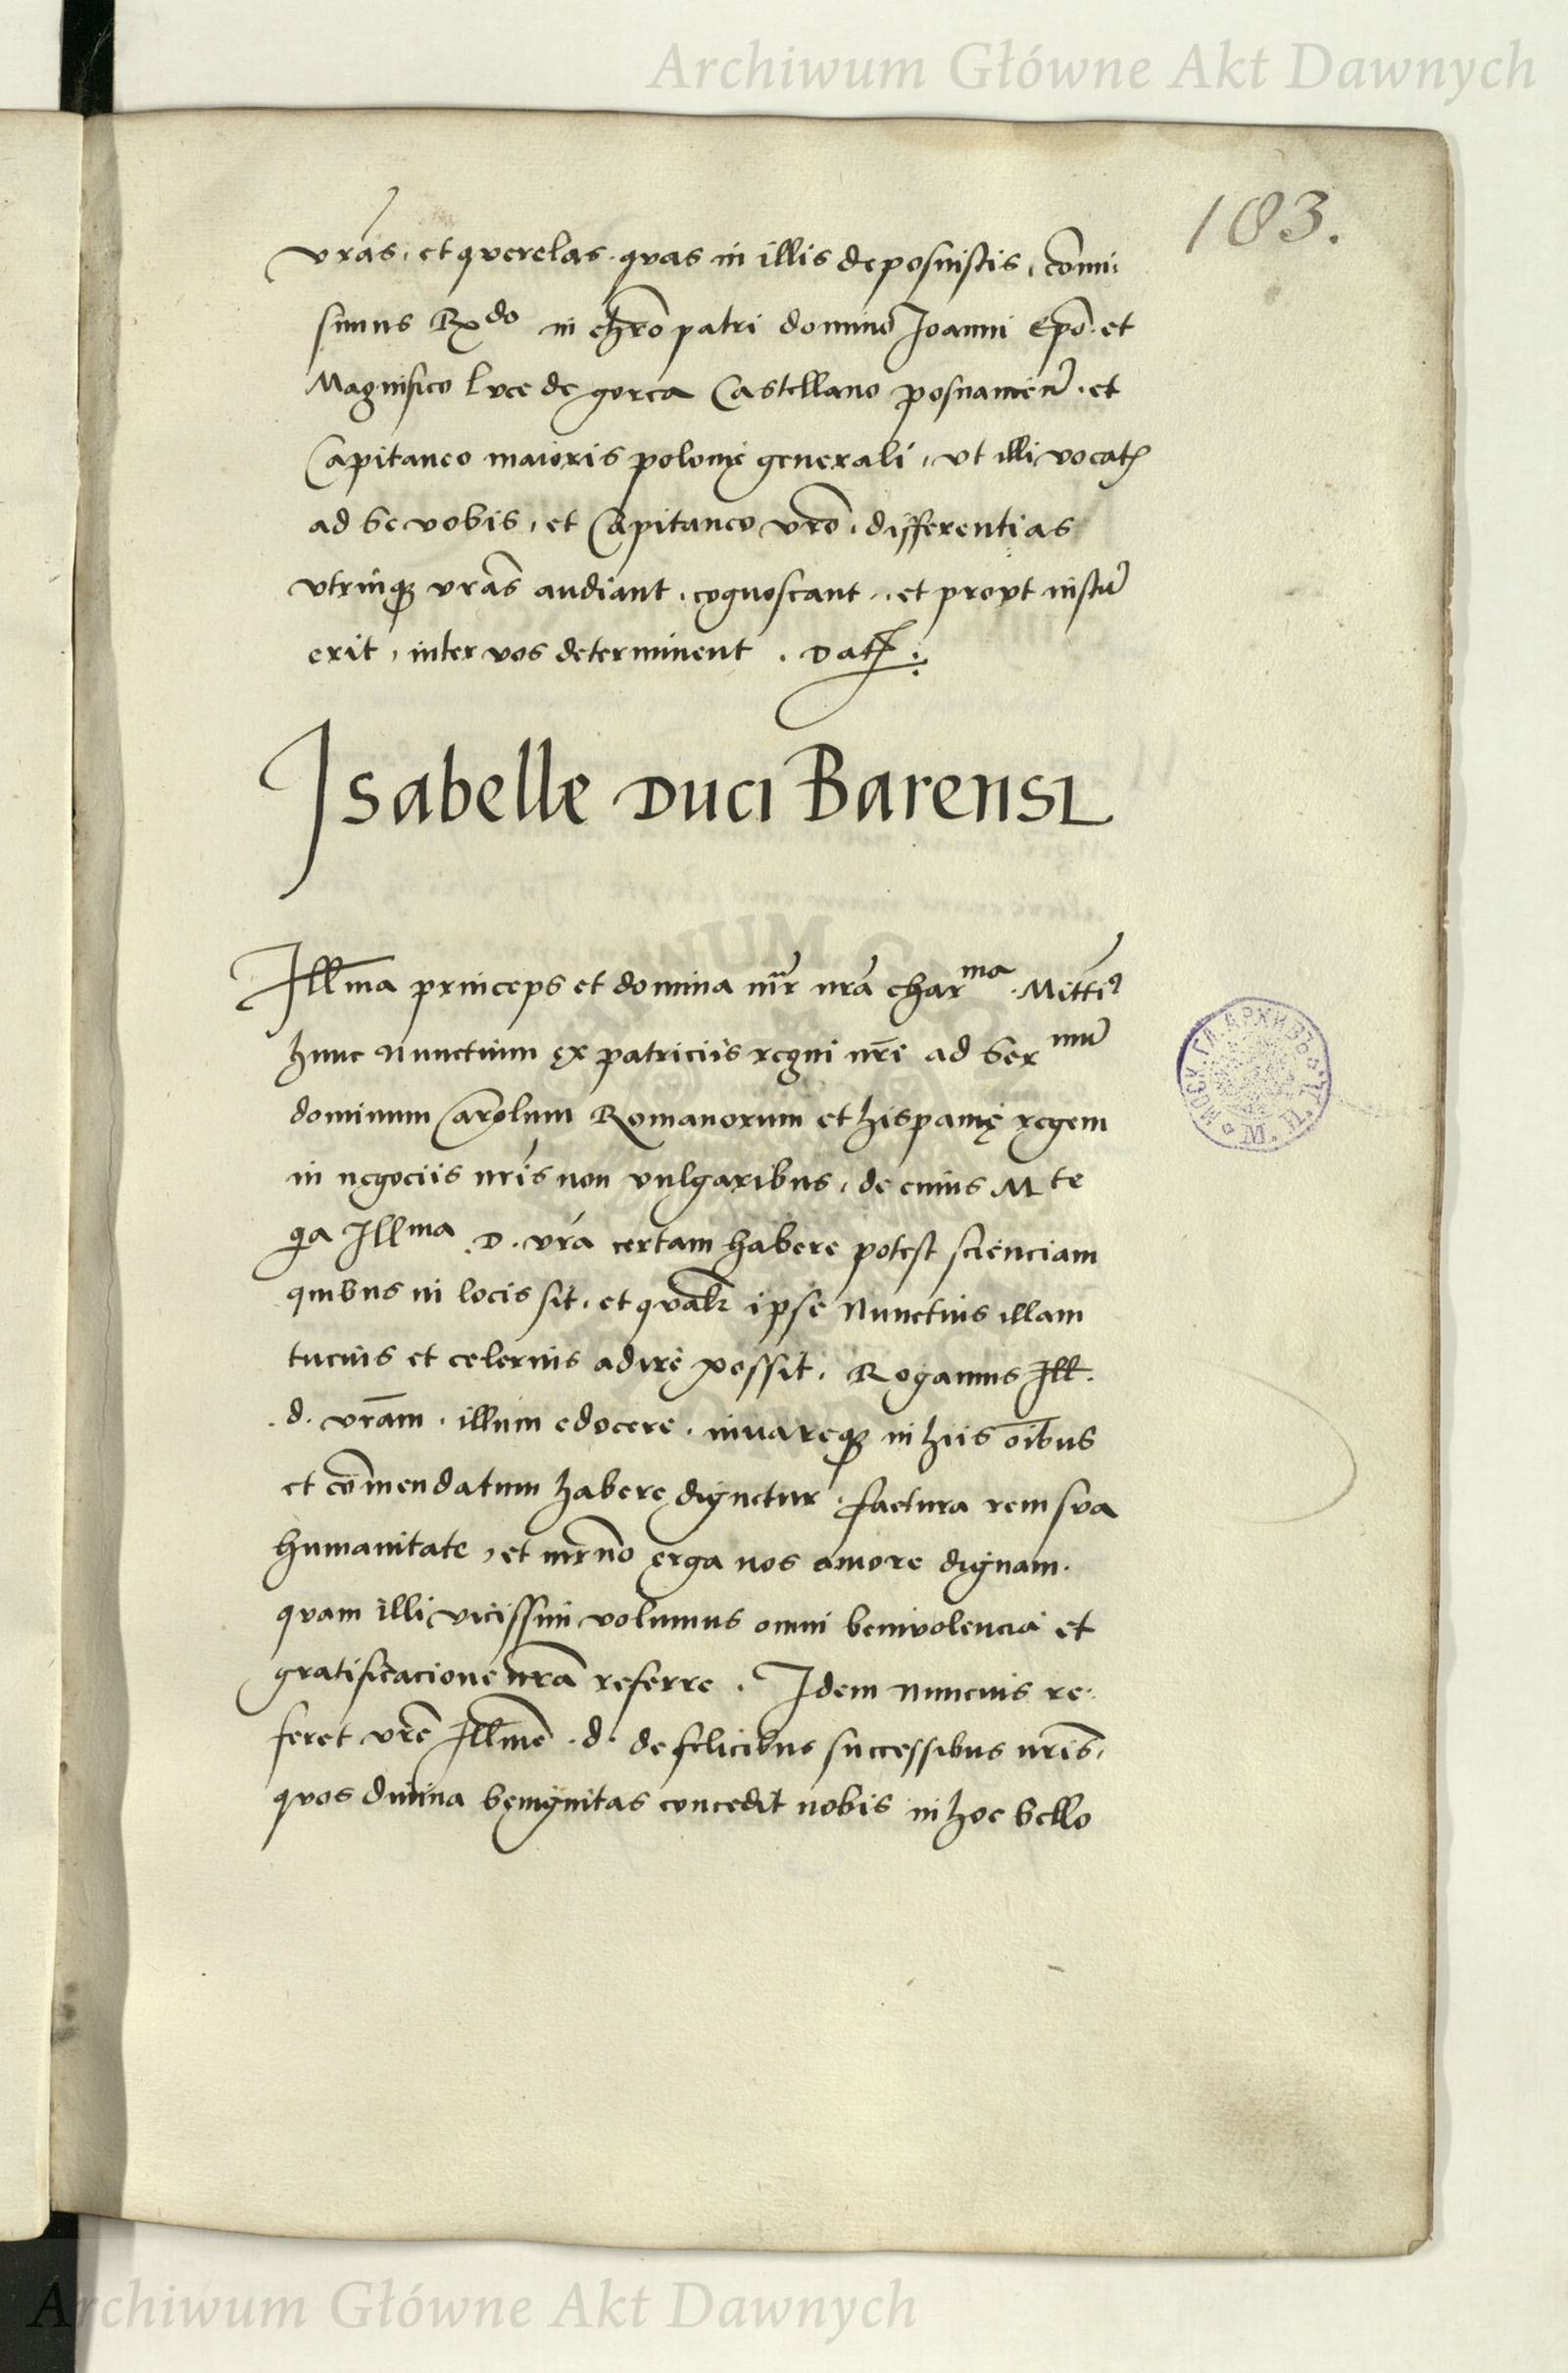 Archiwum Główne Akt Dawnych
183.
vrãs, et querelas quas in illis deposuistis, cõmi
simus Rdo in chrõ patri domino Joanni Epõ et
Magnifico luce de gorca Castellano posnanieñ. et
Capitaneo maioris polonię generali, vt illi vocat
ad se vobis, et Capitaneo vrõ, differentias
vtrinqꝫ vrãs audiant, cognoscant, et prout iustũ
erit, inter vos determinent . Dat
Isabelle Duci Barensi
Illma princeps et domina mr̃ nrã charma . Mittiꝰ
hunc Nunctium ex patriciis regni nrĩ ad Sermũ
dominum Carolum Romanorum et hispanię regem
in negociis nrĩs non vulgaribus, de cuius Mte
qa Illma .D. vrã certam habere potest scienciam
quibus in locis sit, et qualr ipse Nunctius illam
tucius et celerius adire possit, Rogamus Ill.
.d. vrãm . illum edocere . iuuareqꝫ in hiis oĩbus
et cõmendatum habere dignetur . factura rem sua
humanitate, et mr̃no erga nos amore dignam.
quam illi vicissim volumus omni beniuolencia et
gratificacione nrã referre . Idem Nuncius re
feret vrẽ Illmẽ .d. de felicibus successibus nrĩs,
quos diuina benignitas concedit nobis in hoc bello
МОСК. ГЛ. АРХИВЪ
М. И. Д.
Archiwum Główne Akt Dawnych